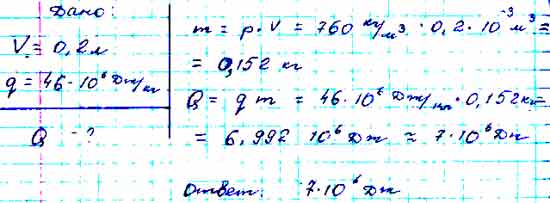 Дано:
V = 0,2 л
q = 46·10⁶ Дж/кг
Q - ?
m = ρ·V = 760 кг/м³ · 0,2·10⁻³ м³ =
= 0,152 кг
Q = q m = 46·10⁶ Дж/кг · 0,152 кг =
= 6,992 10⁶ Дж ≈ 7·10⁶ Дж
Ответ: 7·10⁶ Дж